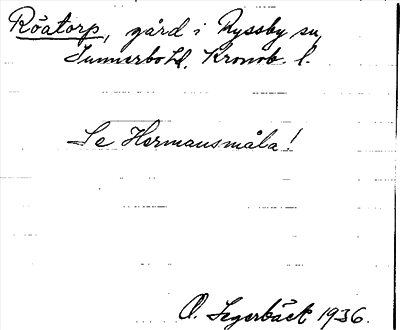 Röatorp, gård i Ryssby sn,
Sunnerbo hd, Kronob. l.
Se Hermansmåla!
O. Segerbäck 1936.